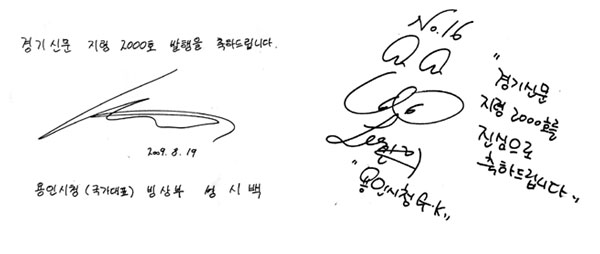 경기신문 지령 2000호 발행을 축하드립니다.
2009. 8. 19
용인시청 (국가대표) 빙상부 성 시 백
No.16
"용인시청 G.K"
"경기신문
지령 2000호를
진심으로
축하드립니다"